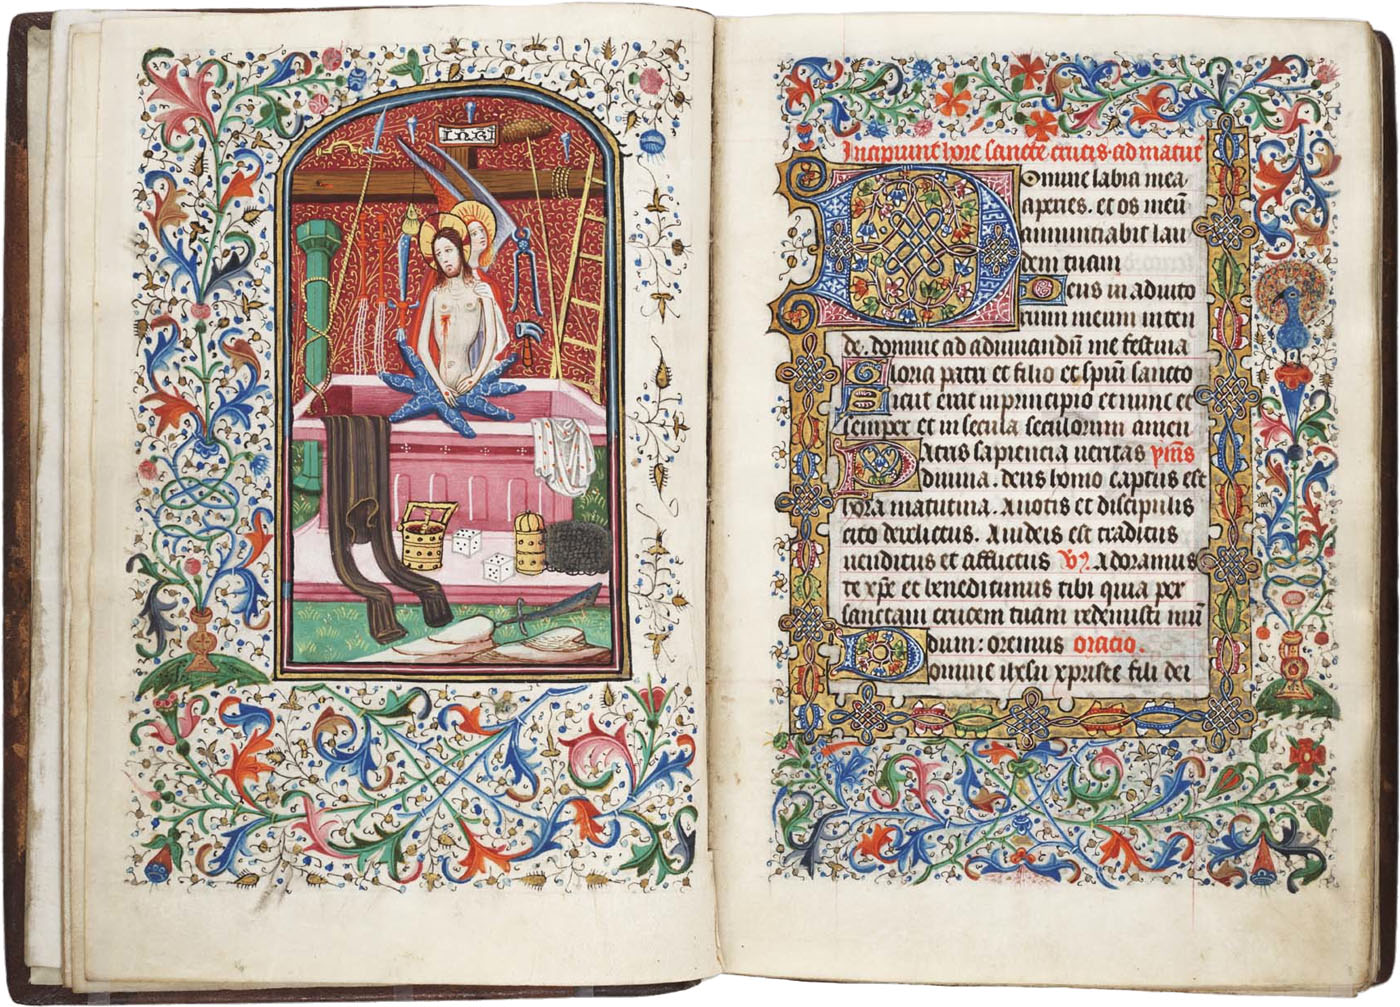 INRI
Incipiunt hore sancte crucis. ad matut̄
Domine labia mea
aperies. et os meū
annunciabit lau
dem tuam
Deus in adiuto
rium meum inten
de. domine ad adiuuandū me festina
Gloria patri et filio et spūi sancto
Sicut erat in principio et nunc et
semper et in secula seculorum amen
Patris sapiencia ueritas ymn̄s
diuina. deus homo captus est
hora matutina. A notis et discipulis
cito derelictus. A iudeis est traditus
uenditus et afflictus V̄. Adoramus
te xp̄e et benedicimus tibi quia per
sanctam crucem tuam redemisti mū
dum: oremus oracio.
Domine ihesu xpriste fili dei